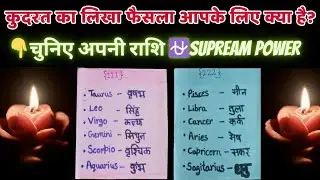 कुदरत का लिखा फैसला आपके लिए क्या है?
👇चुनिए अपनी राशि ⛎SUPREAM POWER
1111
• Taurus - वृषभ
• Leo - सिंह
• Virgo - कन्या
• Gemini - मिथुन
• Scorpio - वृश्चिक
• Aquarius - कुंभ
2222
• Pisces - मीन
• Libra - तुला
• Cancer - कर्क
• Aries - मेष
• Capricorn - मकर
• Sagitarius -